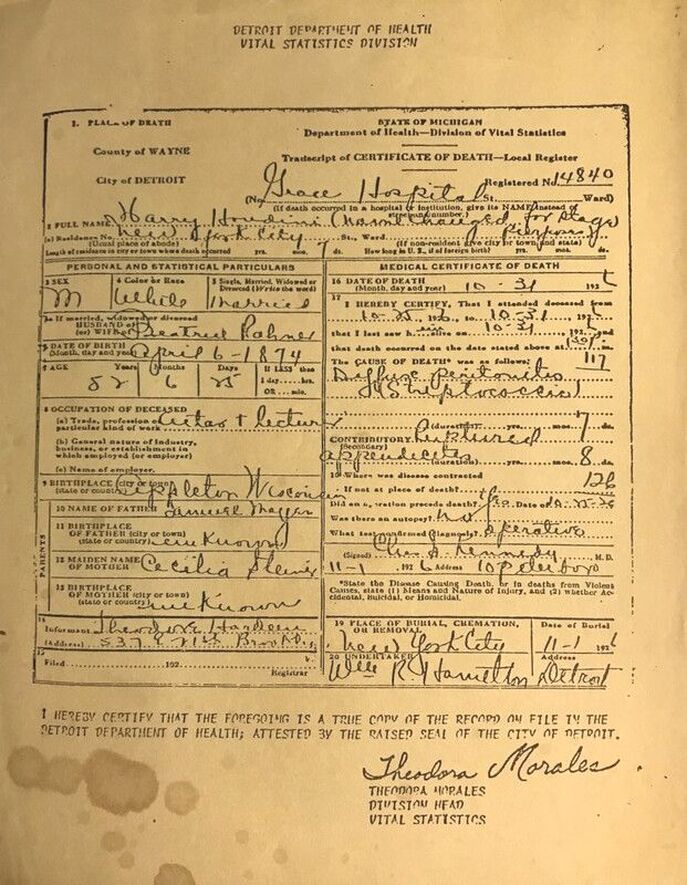 DETROIT DEPARTMENT OF HEALTH
VITAL STATISTICS DIVISION
1. PLACE OF DEATH
County of WAYNE
City of DETROIT
STATE OF MICHIGAN
Department of Health—Division of Vital Statistics
Transcript of CERTIFICATE OF DEATH—Local Register
Registered No. 14840
(No. Grace Hospital St. Ward)
(If death occurred in a hospital or institution, give its NAME instead of street and number.)
1 FULL NAME Harry Houdini (name changed for stage purposes)
(a) Residence No. New York City St., Ward.
(Usual place of abode) (If non-resident give city or town and state)
Length of residence in city or town where death occurred yrs. mos. 7 ds. How long in U. S., if of foreign birth? yrs. mos. ds.
PERSONAL AND STATISTICAL PARTICULARS
3 SEX M
4 Color or Race White
5 Single, Married, Widowed or Divorced (Write the word) Married
5a If married, widowed or divorced
HUSBAND of
(or) WIFE of Beatrice Rahner
DATE OF BIRTH
(Month, day and year) April 6-1874
AGE 52 Years 6 Months 25 Days If LESS than
1 day.... hrs.
OR .... min.
8 OCCUPATION OF DECEASED
(a) Trade, profession or particular kind of work
(b) General nature of industry, business, or establishment in which employed (or employer)
(c) Name of employer.
9 BIRTHPLACE (city or town)
(state or country) Appleton Wisconsin
PARENTS
10 NAME OF FATHER Samuel
11 BIRTHPLACE
OF FATHER (city or town)
(state or country) Unknown
12 MAIDEN NAME
OF MOTHER Cecilia
13 BIRTHPLACE
OF MOTHER (city or town)
(state or country) Unknown
14
Informant Theodore Hardeen
(Address) 537 E 21 St. Brooklyn
15
Filed 192 Registrar
MEDICAL CERTIFICATE OF DEATH
16 DATE OF DEATH
(Month, day and year) 10-31 1926
17
I HEREBY CERTIFY, That I attended deceased from
10-25, 1926, to 10-31, 192
that I last saw him alive on 10-31, 192, and
that death occurred on the date stated above at 130P m.
The CAUSE OF DEATH* was as follows: 117
Diffuse peritonitis
(Streptococcic)
(duration) yrs. mos. 7 ds.
CONTRIBUTORY Ruptured
(Secondary)
appendicitis
(duration) yrs. mos. 8 ds.
18 Where was disease contracted 126
If not at place of death?
Did an operation precede death? Yes Date of 10-25-26
Was there an autopsy? No
What test confirmed diagnosis? Operative
(Signed) Chas S. Kennedy, M. D.
11-1 1926 Address 10 Peterboro
*State the Disease Causing Death, or in deaths from Violent
Causes, state (1) Means and Nature of Injury, and (2) whether Accidental, Suicidal, or Homicidal.
19 PLACE OF BURIAL, CREMATION,
OR REMOVAL
New York City
Date of Burial
11-1 192
20 UNDERTAKER
Wm R. Hamilton
Address
Detroit
I HEREBY CERTIFY THAT THE FOREGOING IS A TRUE COPY OF THE RECORD ON FILE IN THE
DETROIT DEPARTMENT OF HEALTH; ATTESTED BY THE RAISED SEAL OF THE CITY OF DETROIT.
Theodora Morales
THEODORA MORALES
DIVISION HEAD
VITAL STATISTICS